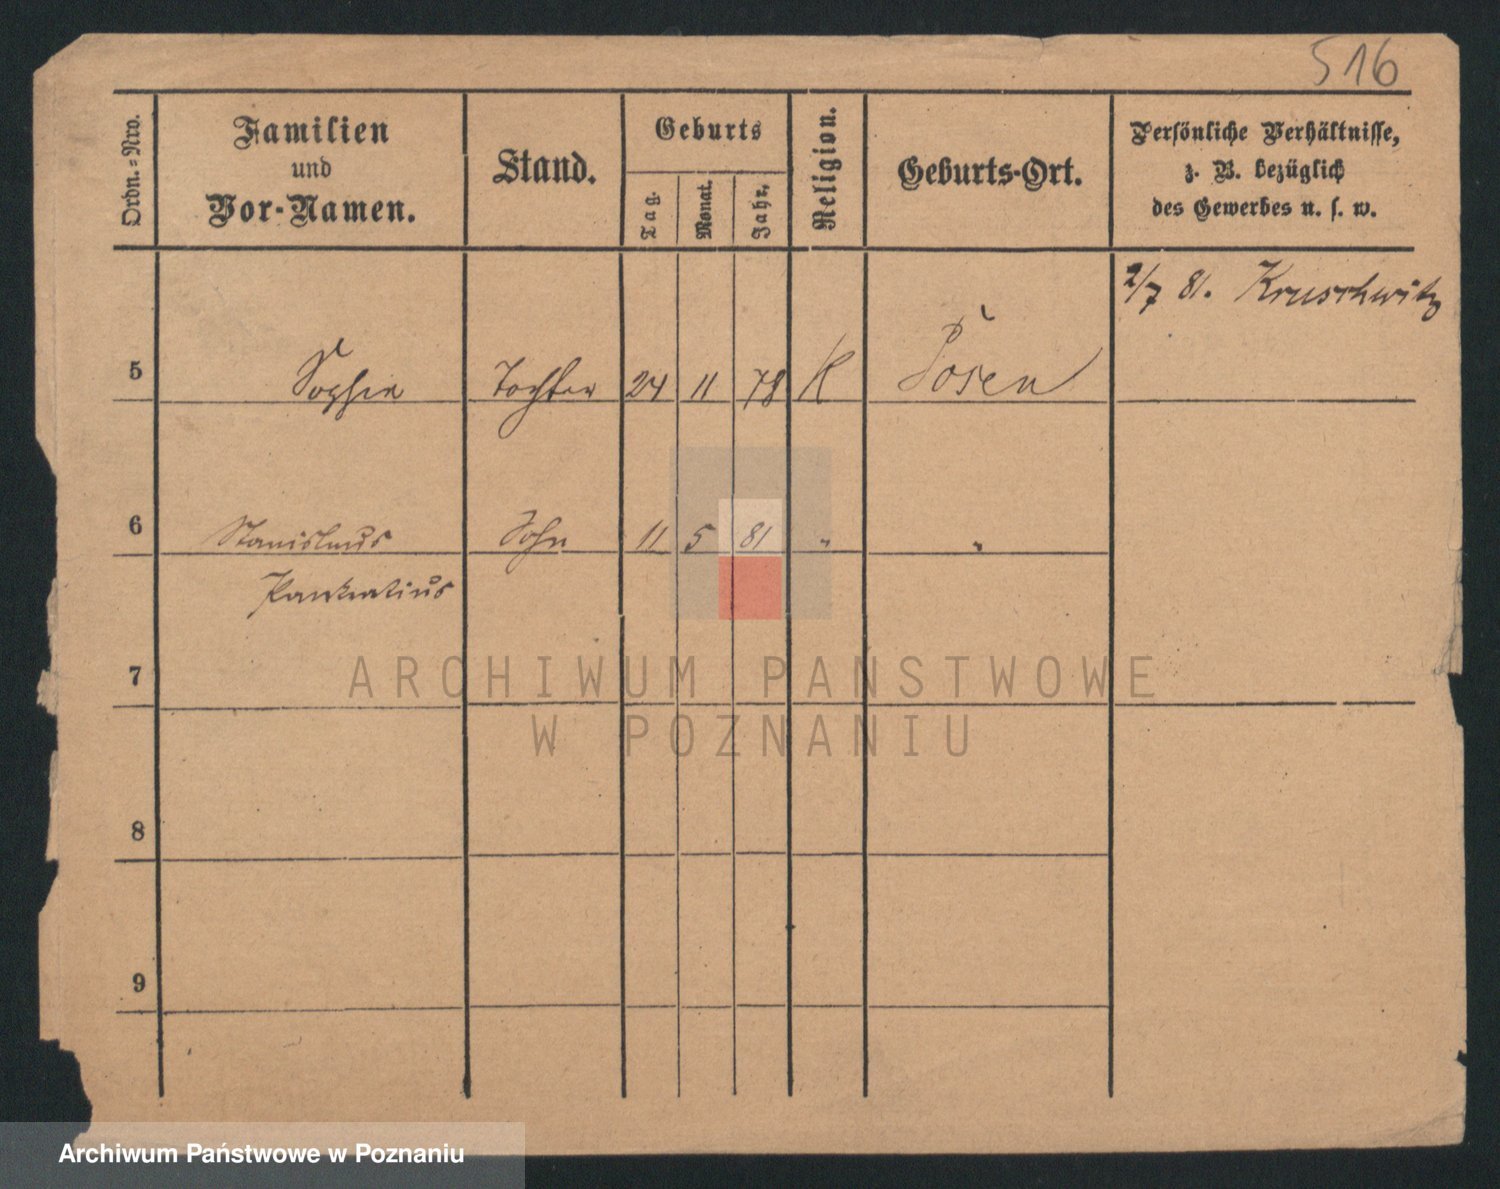 516
Ordn.=Nro.
Familien
und
Vor-Namen.
Stand.
Geburts
Tag.
Monat.
Jahr.
Religion.
Geburts-Ort.
Persönliche Verhältnisse,
z. B. bezüglich
des Gewerbes u. s. w.
2/7 81. Kruschwitz
5 Sophia Tochter 24 11 78 K Posen
6 Stanislaus Sohn 11 5 81 " "
Pankratius
7
8
9
ARCHIWUM PAŃSTWOWE
W POZNANIU
Archiwum Państwowe w Poznaniu